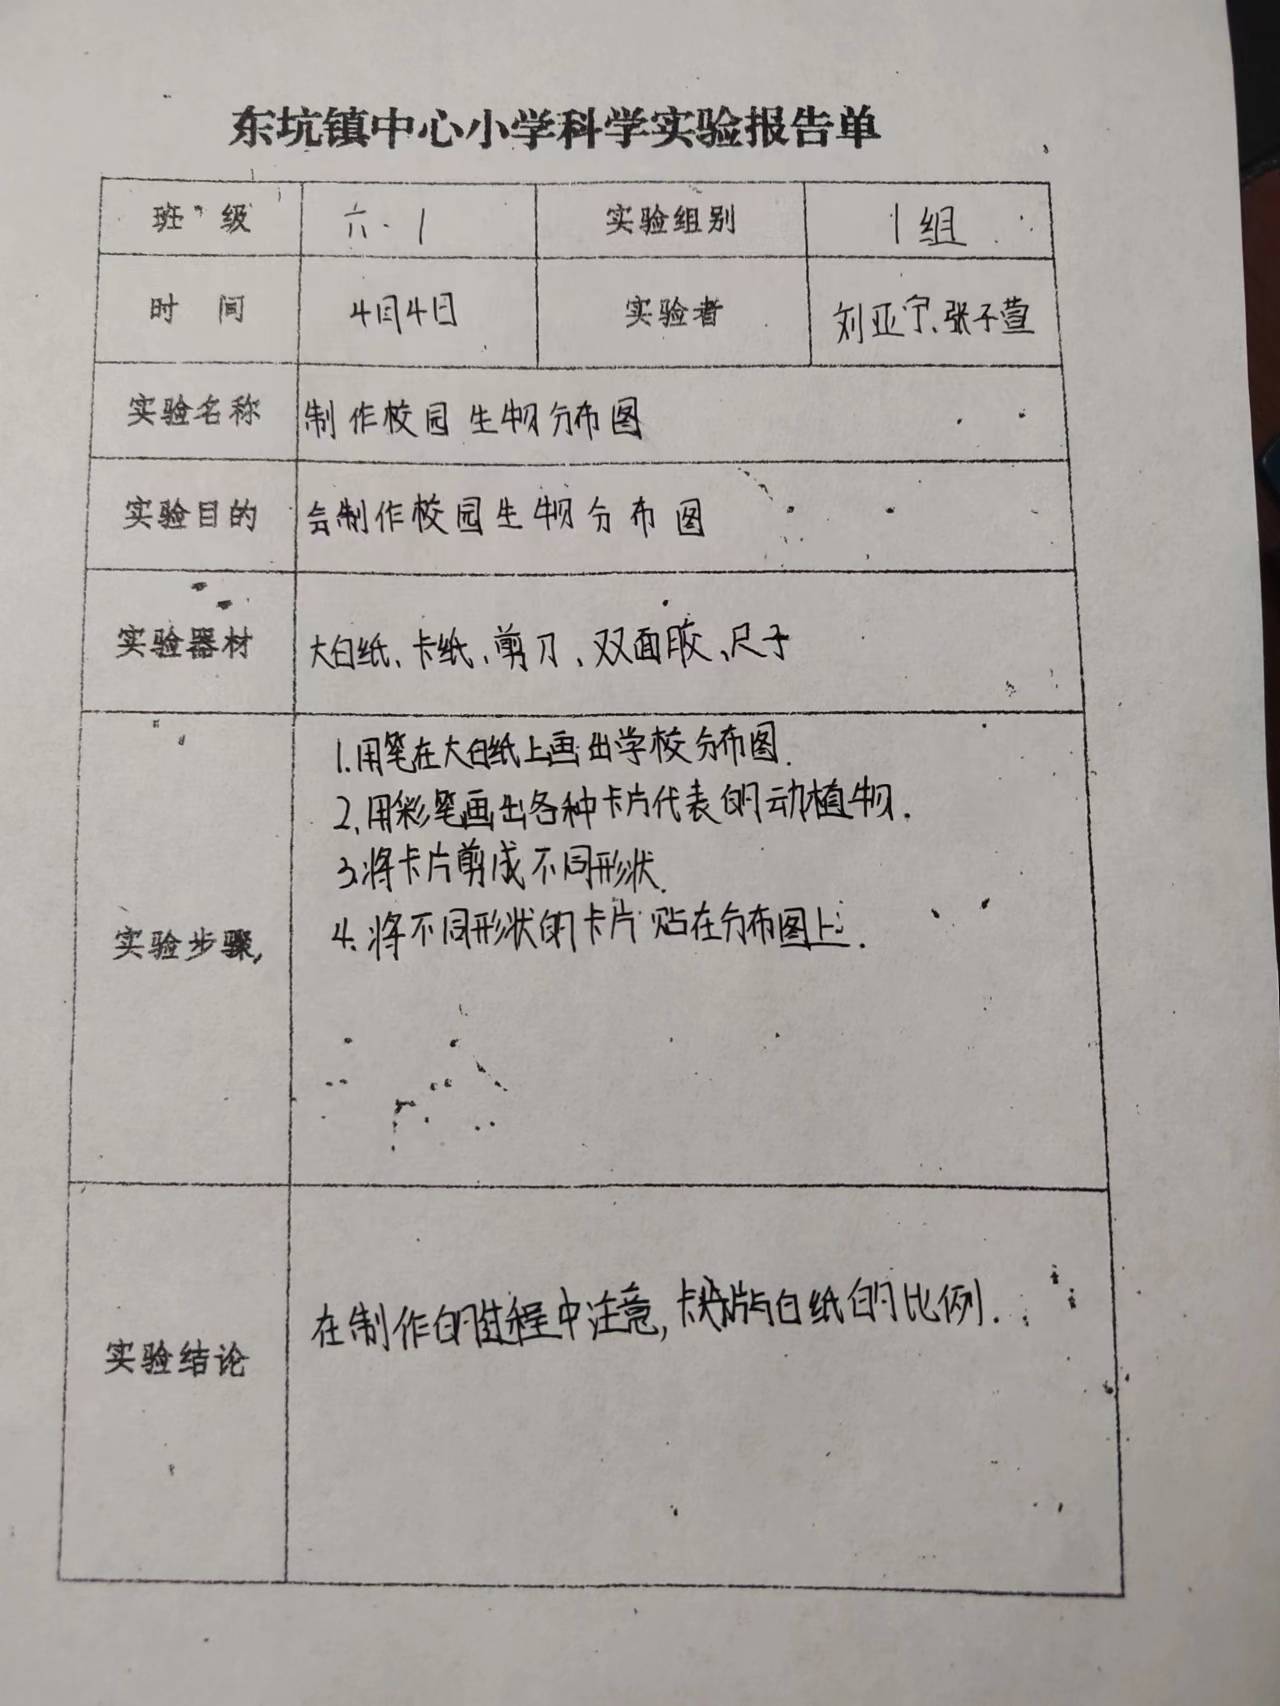 东坑镇中心小学科学实验报告单
班 级 六·1 实验组别 1组
时 间 4月4日 实验者 刘亚宁、张子萱
实验名称 制作校园生物分布图
实验目的 会制作校园生物分布图
实验器材 大白纸、卡纸、剪刀、双面胶、尺子
实验步骤
1.用笔在大白纸上画出学校分布图.
2.用彩笔画出各种卡片代表的动植物.
3.将卡片剪成不同形状.
4.将不同形状的卡片贴在分布图上.
实验结论 在制作的过程中注意,卡片与白纸的比例.